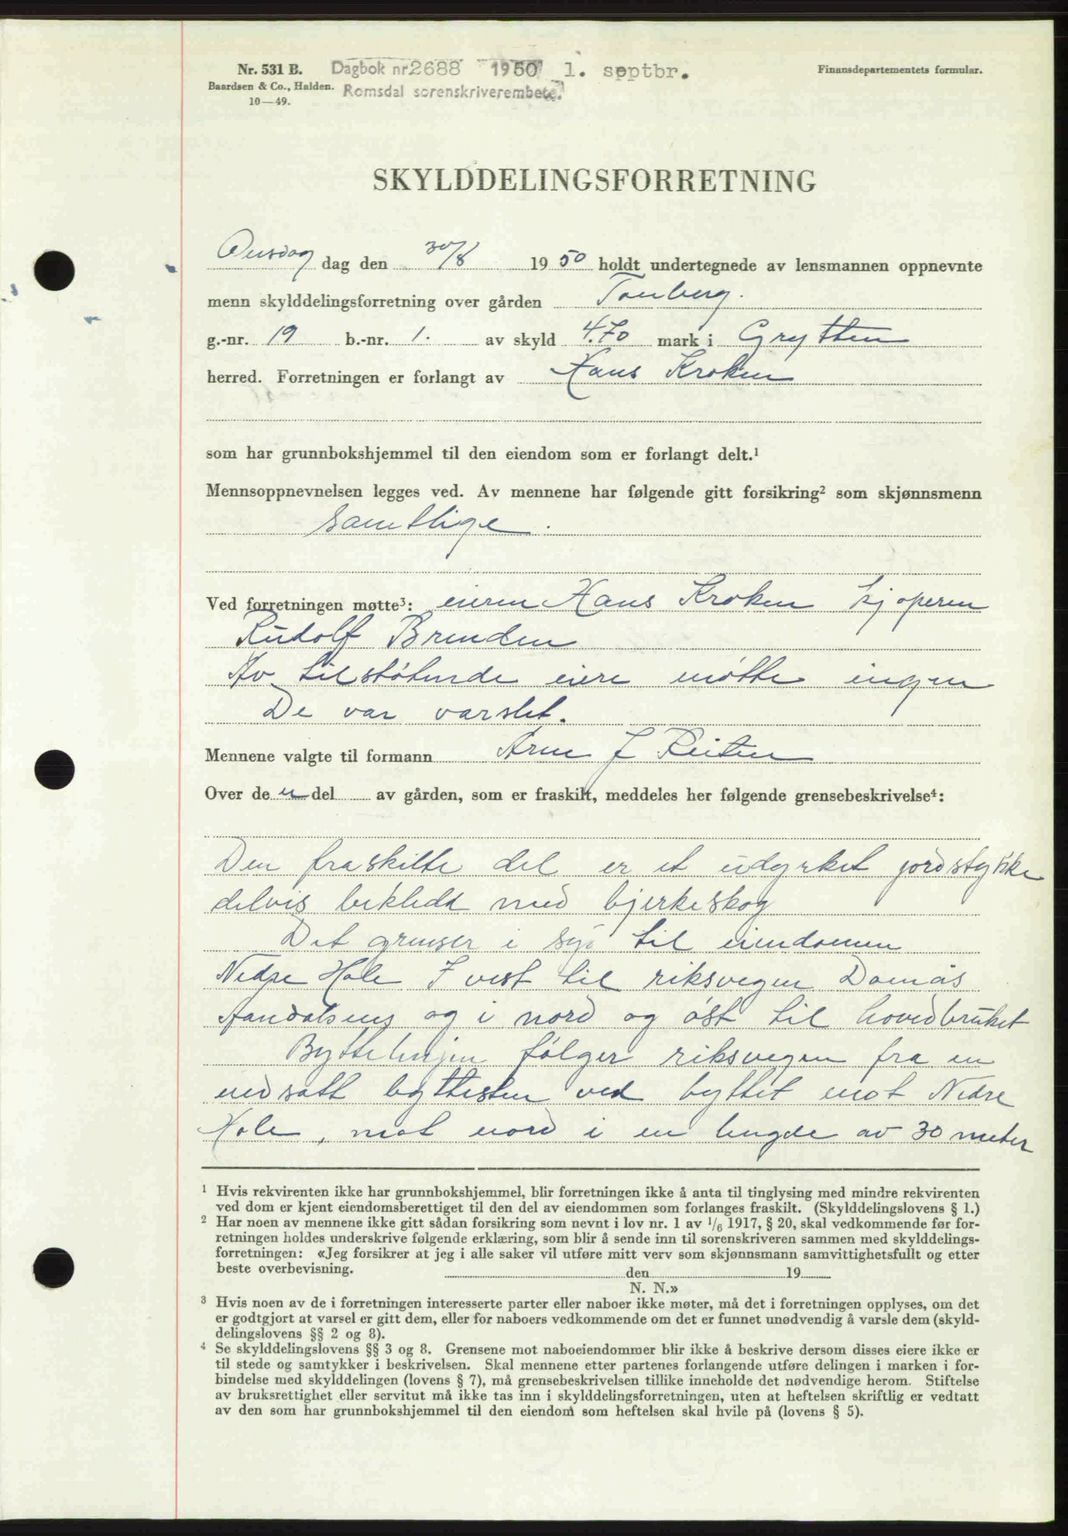 Nr. 531 B.
Baardsen & Co., Halden.
10—49.
Dagbok nr 2688 1950 1. septbr.
Romsdal sorenskriverembete
Finansdepartementets formular.
SKYLDDELINGSFORRETNING
Onsdag dag den 30/8 1950 holdt undertegnede av lensmannen oppnevnte
menn skylddelingsforretning over gården Tonberg.
g.-nr. 19 b.-nr. 1. av skyld 4.70 mark i Grytten
herred. Forretningen er forlangt av Hans Kroken
som har grunnbokshjemmel til den eiendom som er forlangt delt.¹
Mennsoppnevnelsen legges ved. Av mennene har følgende gitt forsikring² som skjønnsmenn
samtlige.
Ved forretningen møtte³: eieren Hans Kroken kjøperen
Rudolf Brenden
Av tilstøtende eiere møtte ingen
De var varslet.
Mennene valgte til formann Arne J Reiten
Over de n del av gården, som er fraskilt, meddeles her følgende grensebeskrivelse⁴:
Den fraskilte del er et udyrket jordstykke
delvis bekledt med bjerkeskog
Det grenser i syd til eiendommen
Nedre Hole I vest til riksvegen Domås
Aandalsnes og i nord og øst til hovedbruket
Byttelinjen følger riksvegen fra en
nedsatt byttesten ved byttet mot Nedre
Hole, mot nord i en lengde av 30 meter
¹ Hvis rekvirenten ikke har grunnbokshjemmel, blir forretningen ikke å anta til tinglysing med mindre rekvirenten
ved dom er kjent eiendomsberettiget til den del av eiendommen som forlanges fraskilt. (Skylddelingslovens § 1.)
² Har noen av mennene ikke gitt sådan forsikring som nevnt i lov nr. 1 av 1/6 1917, § 20, skal vedkommende før for-
retningen holdes underskrive følgende erklæring, som blir å sende inn til sorenskriveren sammen med skylddelings-
forretningen: «Jeg forsikrer at jeg i alle saker vil utføre mitt verv som skjønnsmann samvittighetsfullt og etter
beste overbevisning. den 19
N. N.»
³ Hvis noen av de i forretningen interesserte parter eller naboer ikke møter, må det i forretningen opplyses, om det
er godtgjort at varsel er gitt dem, eller for naboers vedkommende om det er funnet unødvendig å varsle dem (skyld-
delingslovens §§ 2 og 8).
⁴ Se skylddelingslovens §§ 3 og 8. Grensene mot naboeiendommer blir ikke å beskrive dersom disses eiere ikke er
til stede og samtykker i beskrivelsen. Skal mennene etter partenes forlangende utføre delingen i marken i for-
bindelse med skylddelingen (lovens § 7), må grensebeskrivelsen tillike inneholde det nødvendige herom. Stiftelse
av bruksrettighet eller servitut må ikke tas inn i skylddelingsforretningen, uten at heftelsen skriftlig er vedtatt
av den som har grunnbokshjemmel til den eiendom som heftelsen skal hvile på (lovens § 5).